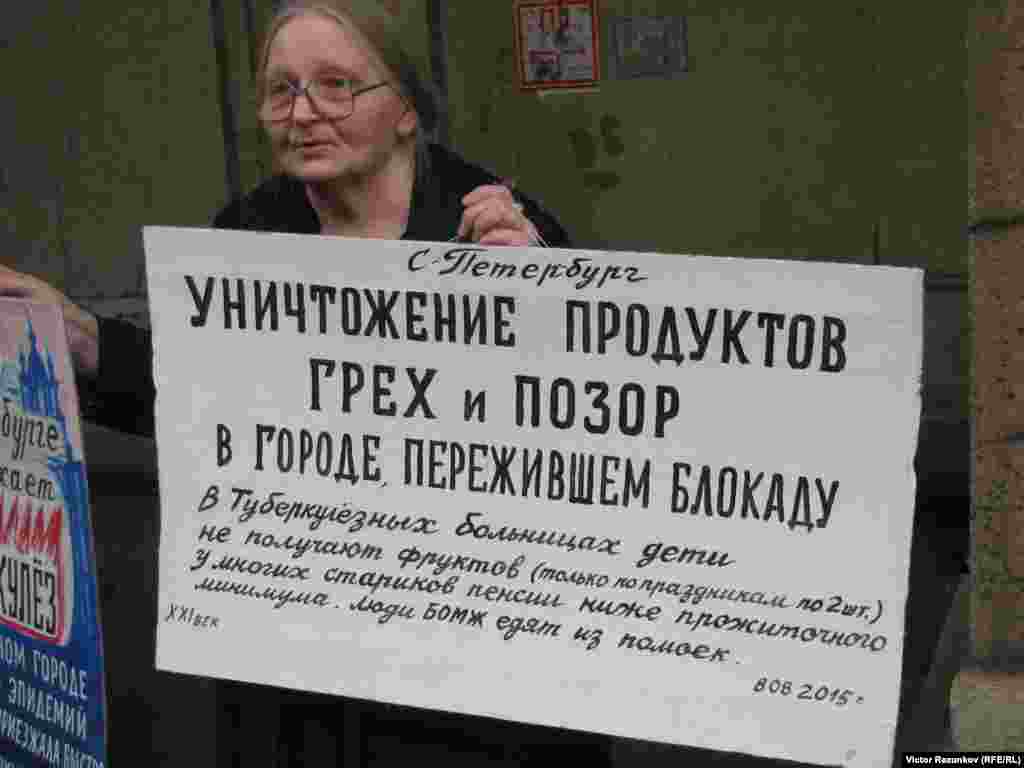 С-Петербург
УНИЧТОЖЕНИЕ ПРОДУКТОВ
ГРЕХ и ПОЗОР
В ГОРОДЕ, ПЕРЕЖИВШЕМ БЛОКАДУ
В Туберкулёзных больницах дети
не получают фруктов (только по праздникам по 2шт.)
У многих стариков пенсии ниже прожиточного
минимума. Люди БОМЖ едят из помоек.
XXI век
8 08 2015 г
бурге
КУЛЁЗ
ГОРОДЕ
ЭПИДЕМИЙ
Victor Rezunkov (RFE/RL)